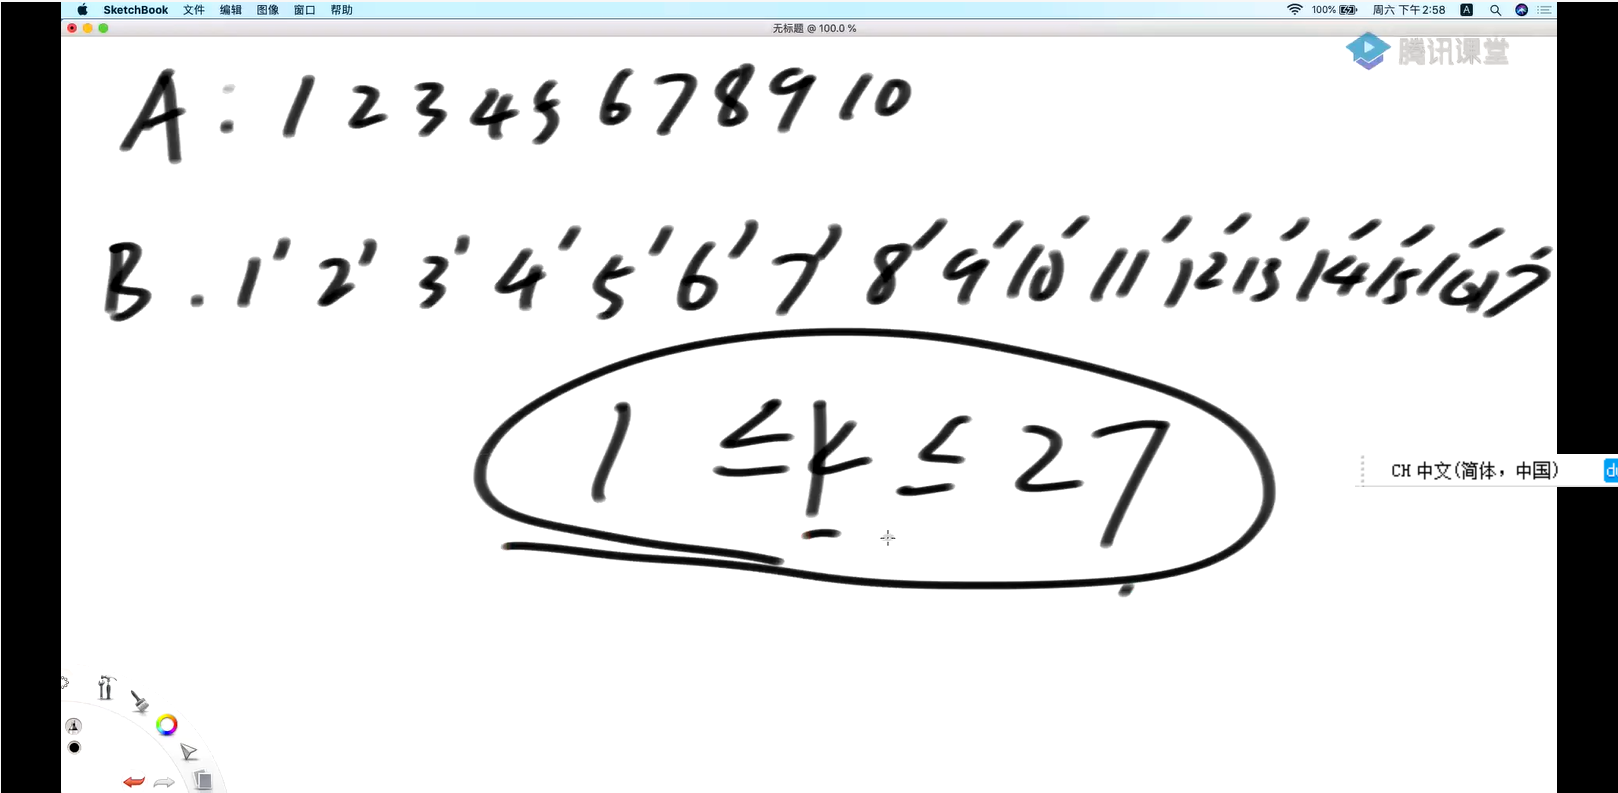 SketchBook 文件 编辑 图像 窗口 帮助 100% 周六 下午2:58 A
无标题 @ 100.0 %
腾讯课堂
A: 1 2 3 4 5 6 7 8 9 10
B. 1' 2' 3' 4' 5' 6' 7' 8' 9' 10' 11' 12' 13' 14' 15' 16' 17'
1 ≤ k ≤ 27
CH 中文(简体，中国)